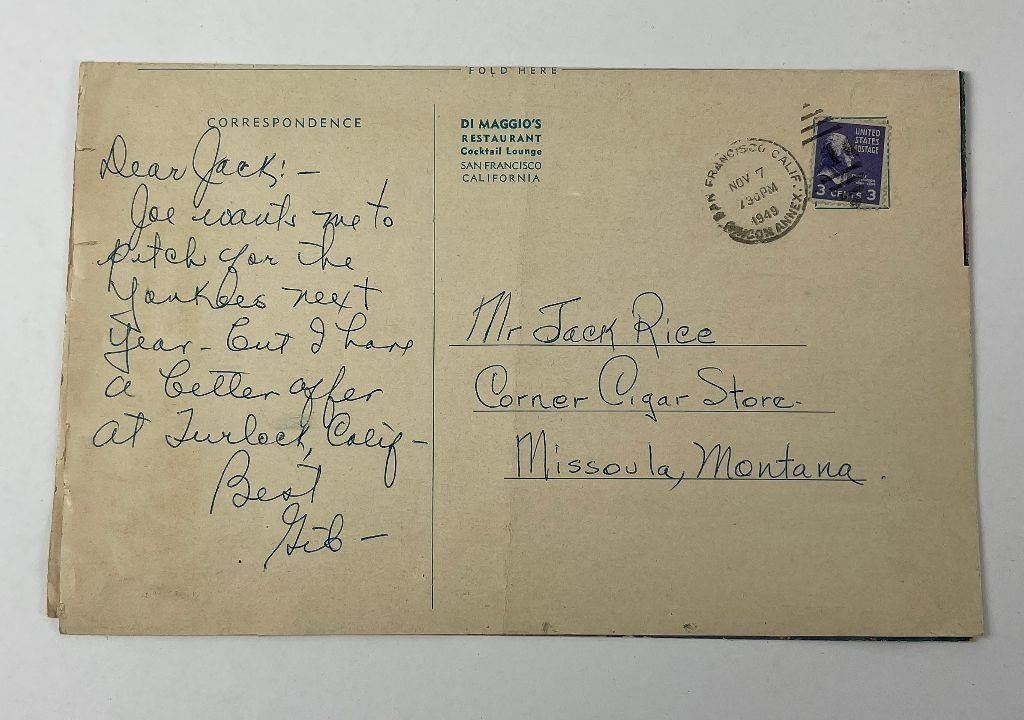 FOLD HERE
CORRESPONDENCE
Dear Jack! —
Joe wants me to
pitch for the
Yankees next
year — but I have
a better offer
at Turlock, Calif —
Best
Gib —
DI MAGGIO'S
RESTAURANT
Cocktail Lounge
SAN FRANCISCO
CALIFORNIA
SAN FRANCISCO CALIF.
NOV 7
730 PM
1949
RINCON ANNEX
UNITED
STATES
POSTAGE
3 CENTS 3
Mr Jack Rice
Corner Cigar Store-
Missoula, Montana.